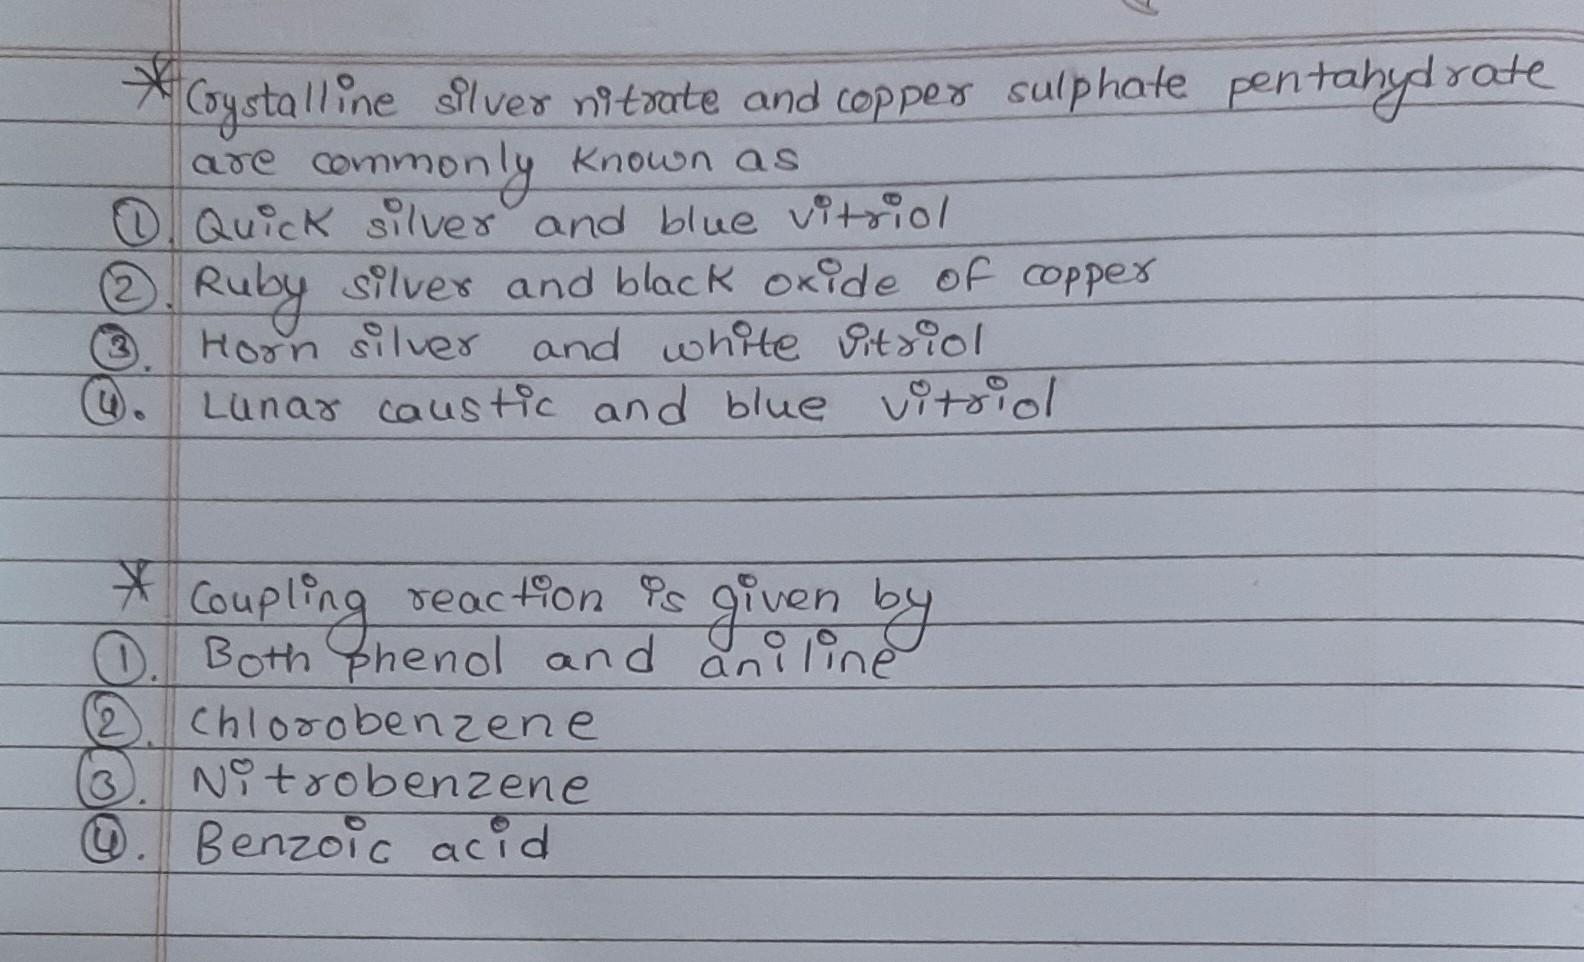 * Crystalline silver nitrate and copper sulphate pentahydrate
are commonly known as
①. Quick silver and blue vitriol
②. Ruby silver and black oxide of copper
③. Horn silver and white vitriol
④. Lunar caustic and blue vitriol
* Coupling reaction is given by
①. Both phenol and aniline
②. Chlorobenzene
③. Nitrobenzene
④. Benzoic acid